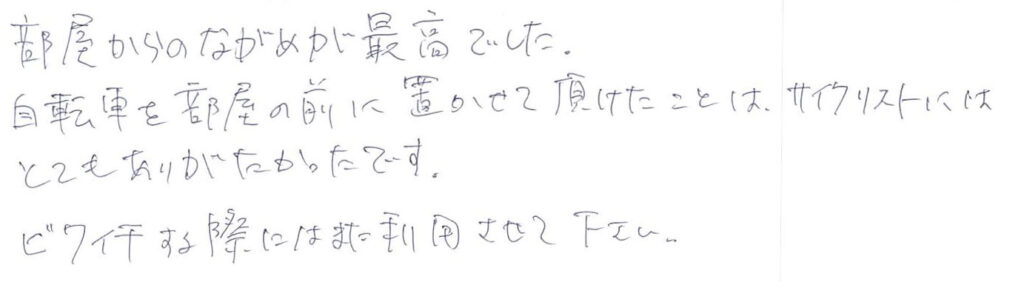 部屋からのながめが最高でした。
自転車を部屋の前に置かせて頂けたことは、サイクリストには
とてもありがたかったです。
ビワイチする際にはまた利用させて下さい。